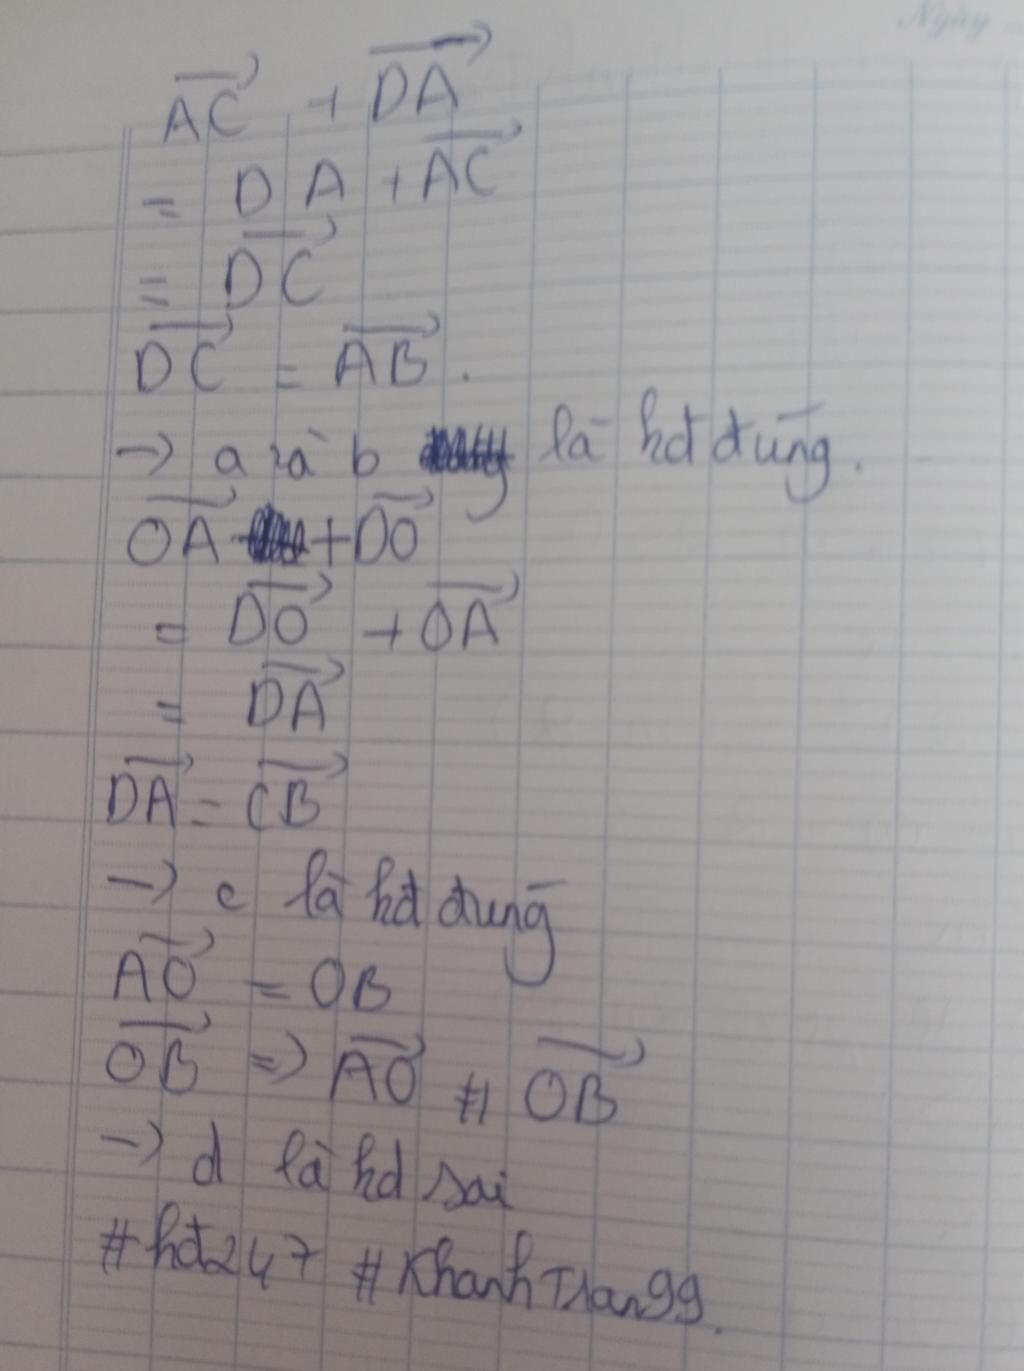 Ngày
AC + DA
= DA + AC
= DC
DC = AB.
→ a và b là hđ đúng.
OA + DO
= DO + OA
= DA
DA = CB
→ c là hđ đung
AO = OB
OB => AO ≠ OB
→ d là hd sai
#hđ247 #KhanhTran99.